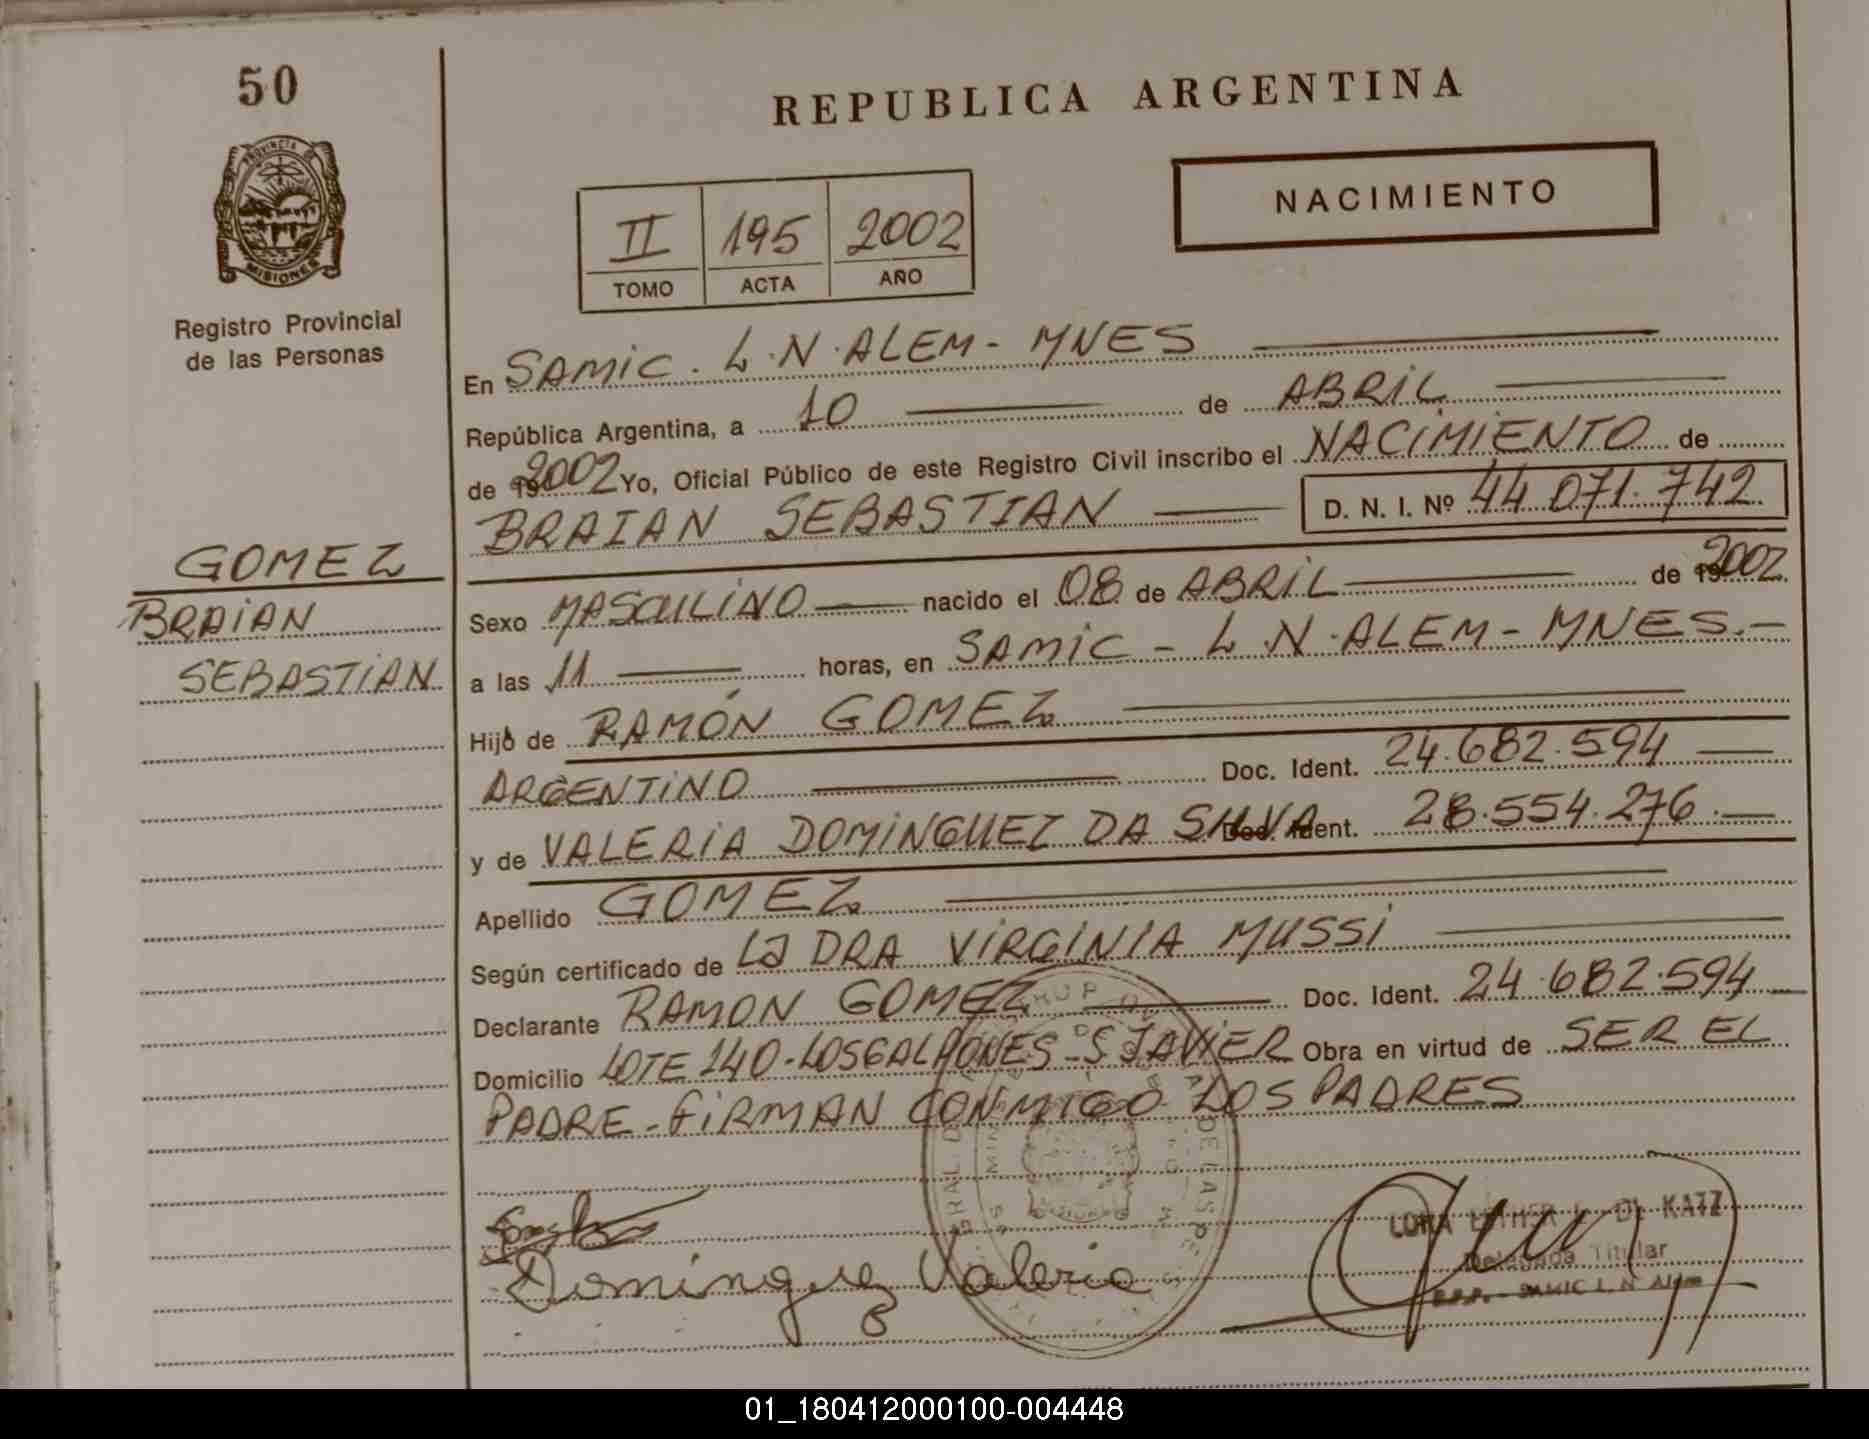 50
REPUBLICA ARGENTINA
PROVINCIA DE
MISIONES
NACIMIENTO
II 195 2002
TOMO ACTA AÑO
Registro Provincial
de las Personas
En SAMIC. L.N. ALEM - MNES
República Argentina, a 10 de ABRIL
de 2002 Yo, Oficial Público de este Registro Civil inscribo el NACIMIENTO de de
BRAIAN SEBASTIAN D. N. I. Nº 44.071.742.
GOMEZ
BRAIAN
SEBASTIAN
Sexo MASCULINO nacido el 08 de ABRIL de 2002
a las 11 horas, en SAMIC - L.N. ALEM - MNES. -
Hijo de RAMÓN GOMEZ
ARGENTINO Doc. Ident. 24.682.594
y de VALERIA DOMINGUEZ DA SILVA Doc. Ident. 28.554.276.
Apellido GOMEZ
Según certificado de La DRA VIRGINIA MUSSI
Declarante RAMON GOMEZ Doc. Ident. 24.682.594
Domicilio LOTE 140 - LOS GALPONES - S JAVIER Obra en virtud de SER EL
PADRE - FIRMAN CONMIGO LOS PADRES
Dominguez Valeria
KATZ
Delegada Titular
SAMIC L. N. Alem
01_180412000100-004448